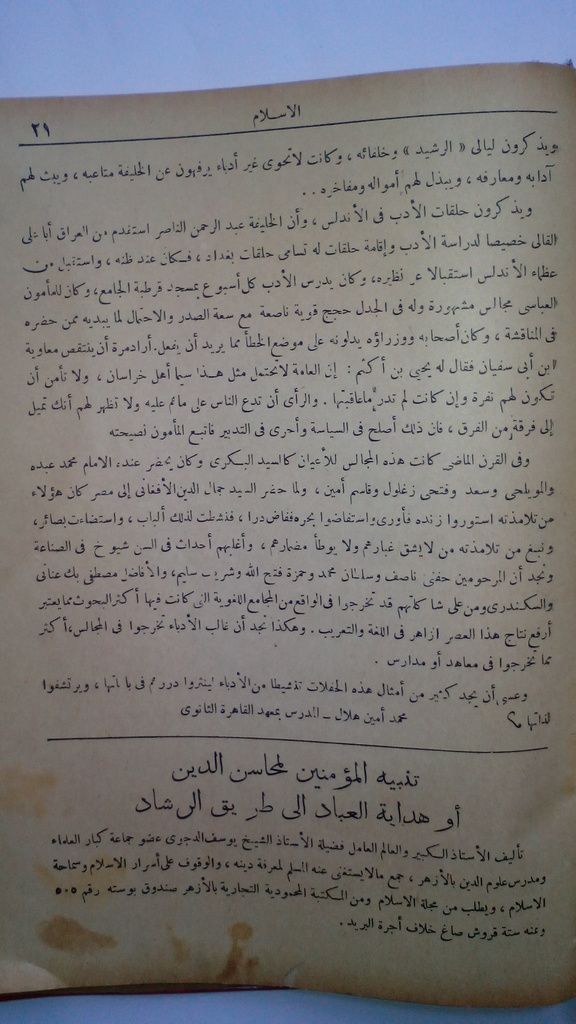 الاسلام
٢٩
ويذكرون ليالى « الرشيد » وخلفائه ، وكانت لاتحوى غير أدباء يرفهون عن الخليفة متاعبه ، ويبث لهم
آدابه ومعارفه ، ويبذل لهم أمواله ومفاخره . .
ويذكرون حلقات الأدب فى الأندلس ، وأن الخليفة عبد الرحمن الناصر استقدم من العراق أبا على
القالى خصيصا لدراسة الأدب وإقامة حلقات له تسامى حلقات بغداد ، فكان عند ظنه ، واستقبل من
عظماء الأندلس استقبالا عز نظيره، وكان يدرس الأدب كل أسبوع بمسجد قرطبة الجامع، وكان للمأمون
العباسى مجالس مشهورة وله فى الجدل حجج قوية ناصعة مع سعة الصدر والاحتمال لما يبديه ممن حضره
فى المناقشة ، وكان أصحابه ووزراؤه يدلونه على موضع الخطأ مما يريد أن يفعل. أراد مرة أن ينتقص معاوية
ابن أبى سفيان فقال له يحيى بن أكثم : إن العامة لاتحتمل مثل هذا سيما أهل خراسان ، ولا تأمن أن
تكون لهم نفرة وإن كانت لم تدر ماعاقبتها . والرأى أن تدع الناس على ماهم عليه ولا تظهر لهم أنك تميل
إلى فرقة من الفرق ، فان ذلك أصلح فى السياسة وأحرى فى التدبير فاتبع المأمون نصيحته
وفى القرن الماضى كانت هذه المجالس للأعيان كالسيد البكرى وكان يحضر عنده الامام محمد عبده
والمويلحى وسعد وفتحى زغلول وقاسم أمين ، ولما حضر السيد جمال الدين الأفغانى إلى مصر كان هؤلاء
من تلامذته استوروا زنده فأورى واستفاضوا بحره ففاض درا ، فنشطت لذلك ألباب ، واستضاءت بصائر،
ونبغ من تلامذته من لايشق غبارهم ولا يوطأ مضمارهم ، وأغلبهم أحداث فى السن شيوخ فى الصناعة
ونجد أن المرحومين حفنى ناصف وسلطان محمد وحمزة فتح الله وشريف سليم، والأفاضل مصطفى بك عنانى
والسكندرى ومن على شاكلتهم قد تخرجوا فى الواقع من المجامع اللغوية التى كانت فيها أكثر البحوث مما يعتبر
أرفع نتاج هذا العصر ازاهر فى اللغة والتعريب . وهكذا نجد أن غالب الأدباء تخرجوا فى المجالس، أكثر
مما تخرجوا فى معاهد أو مدارس .
وعسى أن يجد كثير من أمثال هذه الحفلات تنشيطا من الأدباء لينثروا دررهم فى باحاتها ، ويرتشفوا
لذاتها محمد أمين هلال ــ المدرس بمعهد القاهرة الثانوى
تنبيه المؤمنين لمحاسن الدين
أو هداية العباد الى طريق الرشاد
تأليف الأستاذ الكبير والعالم العامل فضيلة الأستاذ الشيخ يوسف الدجوى عضو جماعة كبار العلماء
ومدرس علوم الدين بالأزهر ، جمع مالايستغنى عنه المسلم لمعرفة دينه ، والوقوف على أسرار الاسلام وسماحة
الاسلام ، ويطلب من مجلة الاسلام ومن المكتبة المحمودية التجارية بالأزهر صندوق بوسته رقم ٥٠٥
وثمنه ستة قروش صاغ خلاف أجرة البريد .